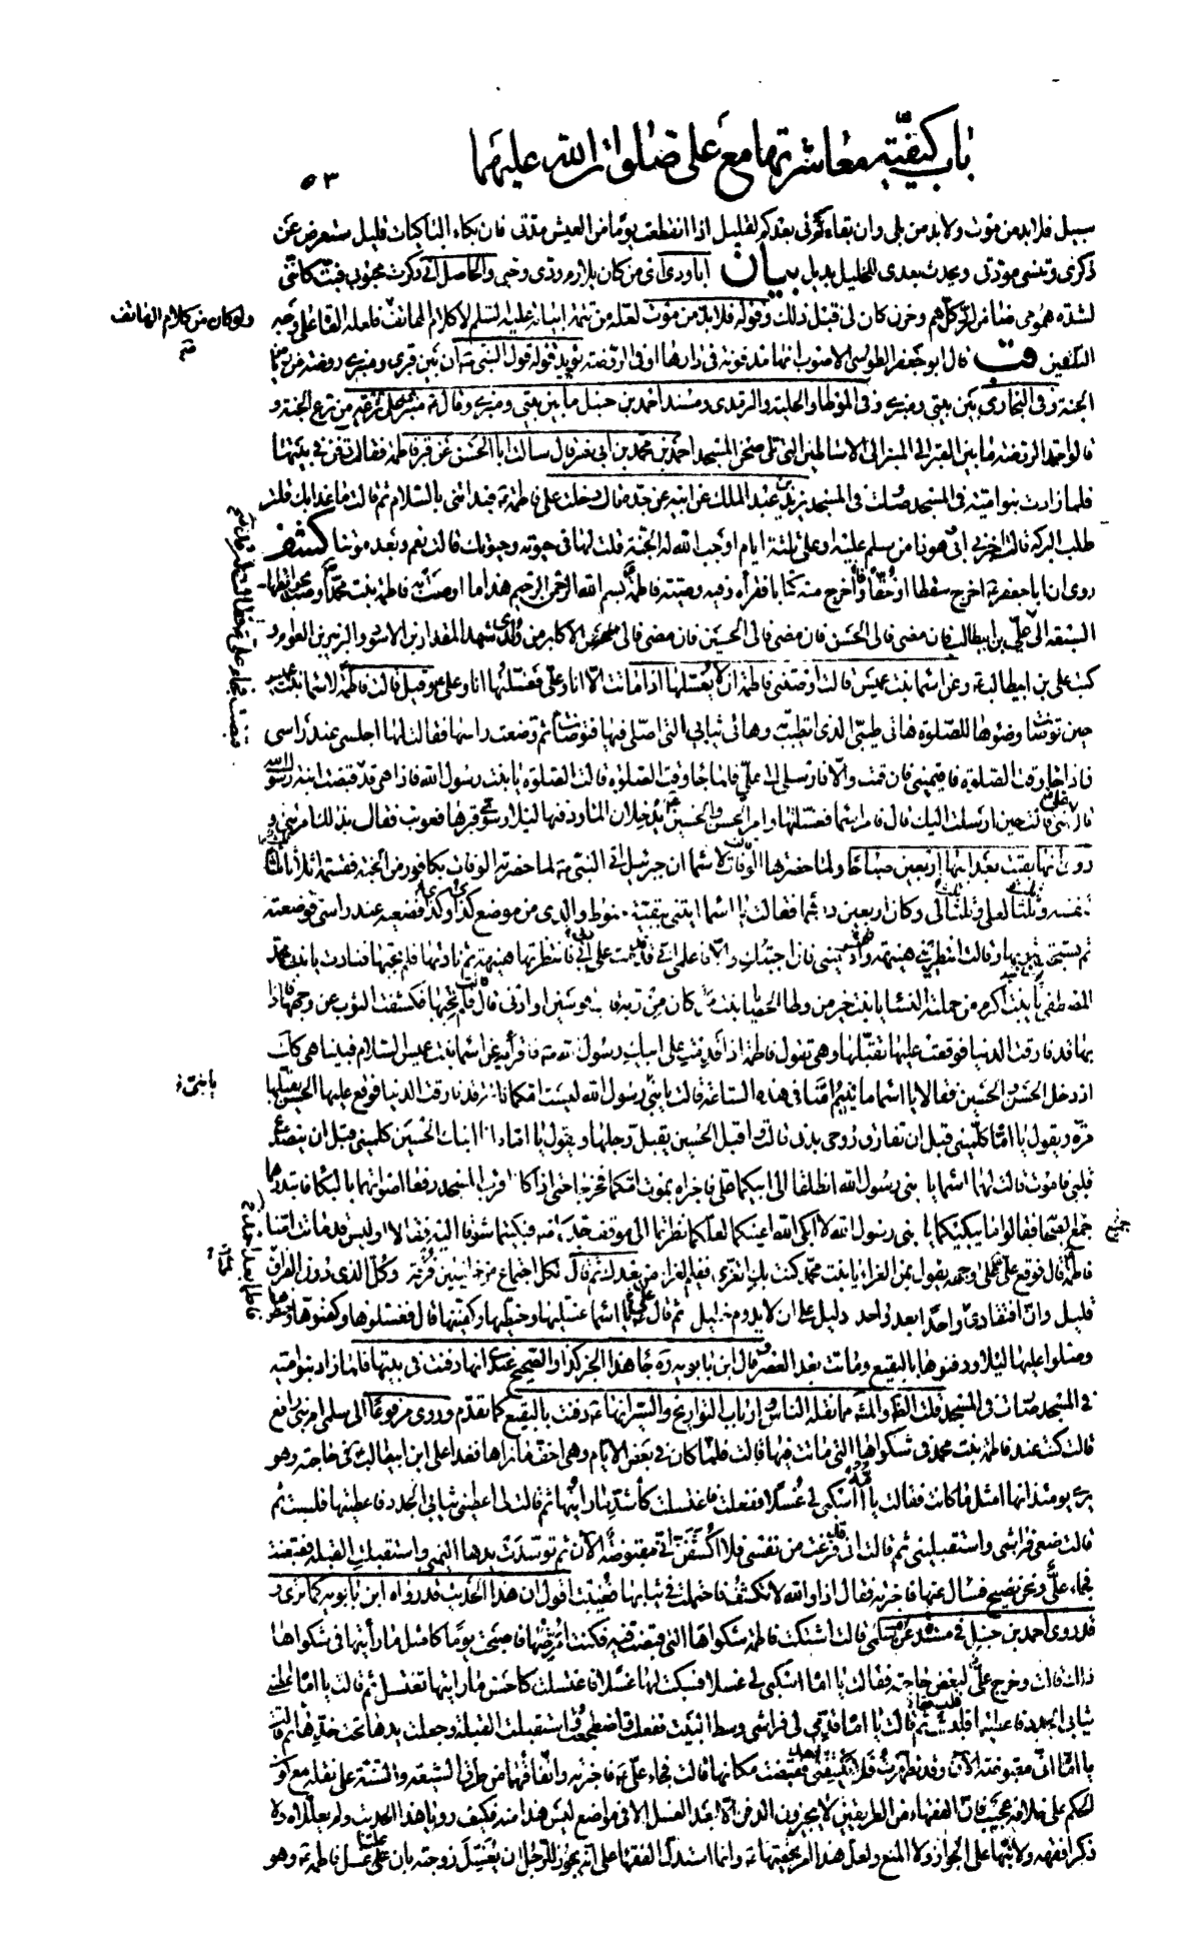 باب كيفية معاشرتها مع على صلوات الله عليهما
٥٣
سبيل فلا بد من موت ولا بد من بلى وان بقاءى بعدكم لقليل اذا انقطعت يوما من العيش مدتى فان بكاء الباكيات قليل ستعرض عن
ذكرى وتنسى مودتى ويحدث بعدى للخليل بديل بيان اباودى اى من كان يلازم ودى وحبى والحاصل انى ذكرت محبوبى فبت كاننى
لشدة همومى ضامن لرد كل هم وحزن كان لى قبل ذلك وقوله فلا بد من موت لعله من تتمة ابياته عليه السلم لا كلام الهاتف فلعله القاه على وجه
ولو كان من كلام الهاتف
التلقين قب قال ابو جعفر الطوسى الاصوب انها مدفونة فى دارها او فى الروضة يؤيد قوله قول النبى ان بين قبرى ومنبرى روضة من رياض
الجنة وفى البخارى بين بيتى ومنبرى وفى الموطا والحلية والترمذى ومسند احمد بن حنبل ما بين بيتى ومنبرى وقال منبرى على ترعة من ترع الجنة و
قالوا حد الروضة ما بين القبر الى المنبر الى الاساطين التى تلى صحن المسجد احمد بن محمد بن ابى نصر قال سالت ابا الحسن عن قبر فاطمة فقال دفنت فى بيتها
فلما زادت بنو امية فى المسجد صارت فى المسجد يزيد بن عبد الملك عن ابيه عن جده قال دخلت على فاطمة فبداتنى بالسلام ثم قالت ما غدا بك قلت
طلب البركة قالت اخبرنى ابى هو ذا من سلم عليه او على ثلثة ايام اوجب الله له الجنة قلت لها فى حيوته وحيوتك قالت نعم وبعد موتنا كشف
روى ان ابا جعفر اخرج سفطا او حقا واخرج منه كتابا فقرأه وفيه وصية فاطمة بسم الله الرحمن الرحيم هذا ما اوصت به فاطمة بنت محمد اوصت بحوائطها
السبعة الى على بن ابيطالب فان مضى فالى الحسن فان مضى فالى الحسين فان مضى فالى الاكابر من ولدى شهد المقداد بن الاسود والزبير بن العوام و
كتب على بن ابيطالب وعن اسماء بنت عميس قالت اوصتنى فاطمة ان لا يغسلها اذا ماتت الا انا وعلى فغسلتها انا وعلى وقيل قالت فاطمة لاسماء بنت عميس
حين توضات وضوئها للصلوة هاتى طيبى الذى اتطيب به وهاتى ثيابى التى اصلى فيها فتوضات ثم وضعت راسها فقالت لها اجلسى عند راسى
فاذا جاء وقت الصلوة فاقيمينى فان قمت والا فارسلى الى على فلما جاء وقت الصلوة قالت الصلوة يا بنت رسول الله فاذا هى قد قبضت ابنة رسول الله
قال متى قالت حين ارسلت اليك قال فامر اسماء فغسلتها وامر الحسن والحسين يدخلان الماء ودفنها ليلا وسوى قبرها فعوتب فقال بذلك امرتنى و
روى انها بقيت بعد ابيها اربعين صباحا ولما حضرتها الوفاة قالت لاسماء ان جبرئيل اتى النبى لما حضرته الوفاة بكافور من الجنة فقسمه اثلاثا
لنفسه وثلثا لعلى وثلثا لى وكان اربعين درهما فقالت يا اسماء ايتنى ببقية حنوط والدى من موضع كذا وكذا فضعيه عند راسى فوضعته
ثم تسجت بثوبها وقالت انتظرينى هنيهة وادعينى فان اجبتك والا فاعلمى انى قد قدمت على ابى فانتظرتها هنيهة ثم نادتها فلم تجبها فنادت يا بنت محمد
المصطفى يا بنت اكرم من حملته النساء يا بنت خير من وطا الحصا يا بنت من كان من ربه قاب قوسين او ادنى قال فلم تجبها فكشفت الثوب عن وجهها فاذا
بها قد فارقت الدنيا فوقعت عليها تقبلها وهى تقول فاطمة اذا قدمت على ابيك رسول الله فاقرأيه عن اسماء بنت عميس السلام فبينا هى كذلك
اذ دخل الحسن والحسين فقالا يا اسماء ما ينيم امنا فى هذه الساعة قالت يا بنى رسول الله ليست امكما نائمة قد فارقت الدنيا فوقع عليها الحسن يقبلها
يا بنتى
مرة ويقول يا اماه كلمينى قبل ان تفارق روحى بدنى قالت واقبل الحسين يقبل رجلها ويقول يا اماه انا ابنك الحسين كلمينى قبل ان يتصدع
قلبى فاموت قالت لهما اسماء يا بنى رسول الله انطلقا الى ابيكما على فاخبراه بموت امكما فخرجا حتى اذا كانا قرب المسجد رفعا اصواتهما بالبكاء فابتدرهما
جميع الصحابة فقالوا ما يبكيكما يا بنى رسول الله لا ابكى الله اعينكما لعلكما نظرتما الى موقف جدكما فبكيتما شوقا اليه فقالا اوليس قد ماتت امنا
جميع
فاطمة قال فوقع على على وجهه يقول بمن العزاء يا بنت محمد كنت بك اتعزى ففيم العزاء من بعدك ثم قال لكل اجتماع من خليلين فرقة وكل الذى دون الفراق
قليل وان افتقادى واحدا بعد واحد دليل على ان لا يدوم خليل ثم قال على يا اسماء غسليها وحنطيها وكفنيها قال فغسلوها وكفنوها وحنطوها
وصلوا عليها ليلا ودفنوها بالبقيع وماتت بعد العصر قال ابن بابويه ره جاء هذا الخبر كذا والصحيح عندى انها دفنت فى بيتها فلما زاد بنو امية
فى المسجد صارت فى المسجد قلت الظاهر والمشهور مما نقله الناس وارباب التواريخ والسير انها دفنت بالبقيع كما تقدم وروى مرفوعا الى سلمى ام بنى رافع
قالت كنت عند فاطمة بنت محمد فى شكواها التى ماتت فيها قالت فلما كان فى بعض الايام وهى اخف ما نراها فغدا على ابن ابيطالب فى حاجته وهو
يرى يومئذ انها امثل ما كانت فقالت يا امه اسكبى لى غسلا ففعلت فاغتسلت كاشد ما رايتها ثم قالت لى اعطينى ثيابى الجدد فاعطيتها فلبست ثم
قالت ضعى فراشى واستقبلينى ثم قالت انى قد فرغت من نفسى فلا اكشفن انى مقبوضة الآن ثم توسدت يدها اليمنى واستقبلت القبلة فقبضت
فجاء على ونحن نصيح فسال عنها فاخبرته فقال اذا والله لا تكشف فاحتملت فى ثيابها فغيبت اقول ان هذا الحديث قد رواه ابن بابويه كما ترى و
قد روى احمد بن حنبل فى مسنده عن ام سلمى قالت اشتكت فاطمة شكواها التى قبضت فيه فكنت امرضها فاصبحت يوما كامثل ما رايتها فى شكواها
ذلك قالت وخرج على لبعض حاجته فقالت يا اماه اسكبى لى غسلا فسكبت لها غسلا فاغتسلت كاحسن ما رايتها تغتسل ثم قالت يا اماه اعطينى
ثيابى الجدد فاعطيتها فلبستها ثم قالت يا اماه قدمى لى فراشى وسط البيت ففعلت فاضطجعت واستقبلت القبلة وجعلت يدها تحت خدها ثم قالت
يا اماه انى مقبوضة الآن وقد تطهرت فلا يكشفنى احد فقبضت مكانها قالت فجاء على فاخبرته واتفاقهما من طرق الشيعة والسنة على نقله مع كون
الحكم على خلافه عجيب فان الفقهاء من الطريقين لا يجيزون الدفن الا بعد الغسل الا فى مواضع ليس هذا منه فكيف رويا هذا الحديث ولم يعللاه ولا
ذكرا فقهه ولا نبها على الجواز ولا المنع ولعل هذا امر يخصها وانما استدل الفقهاء على انه يجوز للرجل ان يغسل زوجته بان على غسل فاطمة وهو